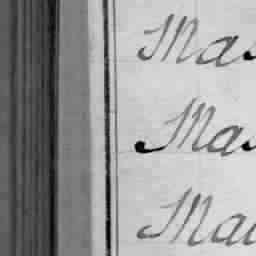 Mas
Mas
Mar